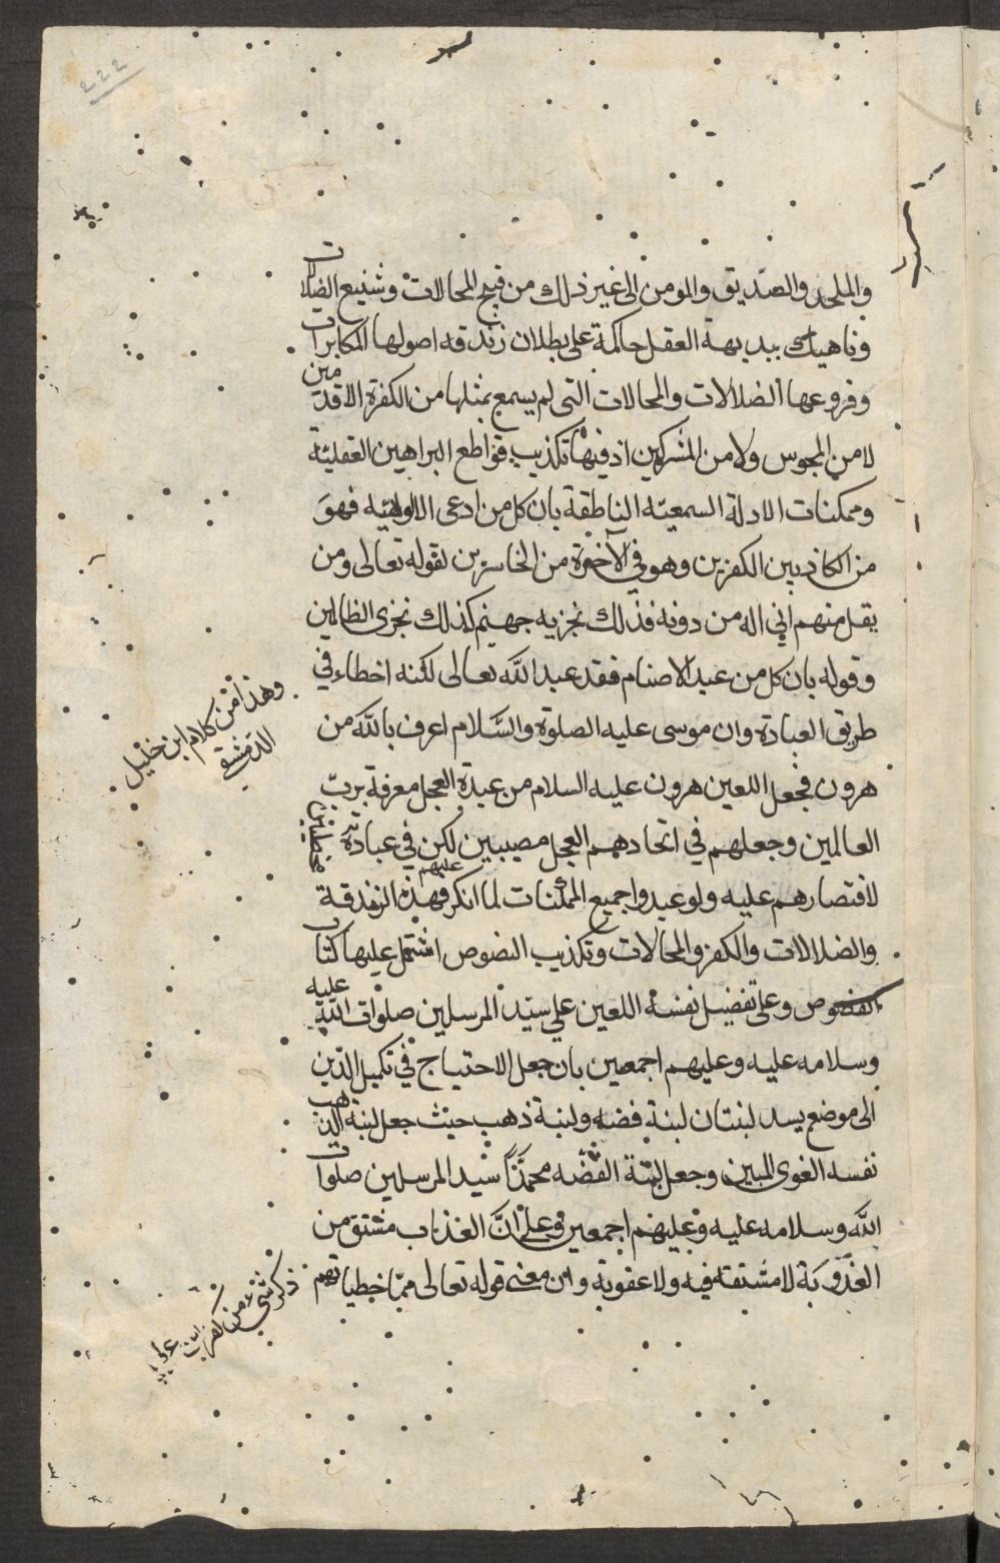 222
والملحد والصديق والمومن الى غير ذلك من قبح المحالات وشنيع الضلالات
وناهيك ببديهة العقل حاكمة على بطلان زندقه اصولها المكابرات
وفروعها الضلالات والمحالات التى لم يسمع بمثلها من الكفرة الاقدمين
لا من المجوس ولا من المشركين اذ فيها تكذيب قواطع البراهين العقلية
ومحكمات الادلة السمعيه الناطقة بان كل من ادعى الالوهيه فهو
من الكاذبين الكفرين وهو في الآخرة من الخاسرين لقوله تعالى ومن
يقل منهم اني اله من دونه فذلك نجزيه جهنم كذلك نجزى الظالمين
وقوله بان كل من عبد الاصنام فقد عبد الله تعالى لكنه اخطاء في
طريق العبادة وان موسى عليه الصلوة والسلام اعرف بالله من
هرون فجعل اللعين هرون عليه السلام من عبدة العجل معرفة برب
العالمين وجعلهم في اتحادهم العجل مصيبين لكن في عبادته
لاقتصارهم عليه ولو عبدوا جميع الممكنات لما انكر عليهم فهذه الزندقة
والضلالات والكفر والمحالات وتكذيب النصوص اشتمل عليها كتاب
الفصوص وعلى تفضيل نفسه اللعين علي سيد المرسلين صلوات الله عليه
وسلامه عليه وعليهم اجمعين بان جعل الاحتياج في تكميل الدين
الى موضع يسد لبنتان لبنة فضه ولبنة ذهب حيث جعل لبنة الذهب
نفسه الغوى المبين وجعل لبنة الفضه محمدا سيد المرسلين صلوات
الله وسلامه عليه وعليهم اجمعين وعلى ان العذاب مشتق من
العذوبة لا مشتقة فيه ولا عقوبة وان معنى قوله تعالى مما خطياتهم
وهذا من كلام ابن خليل
الدمشقي
ذكر شي من كفر ابن عربي